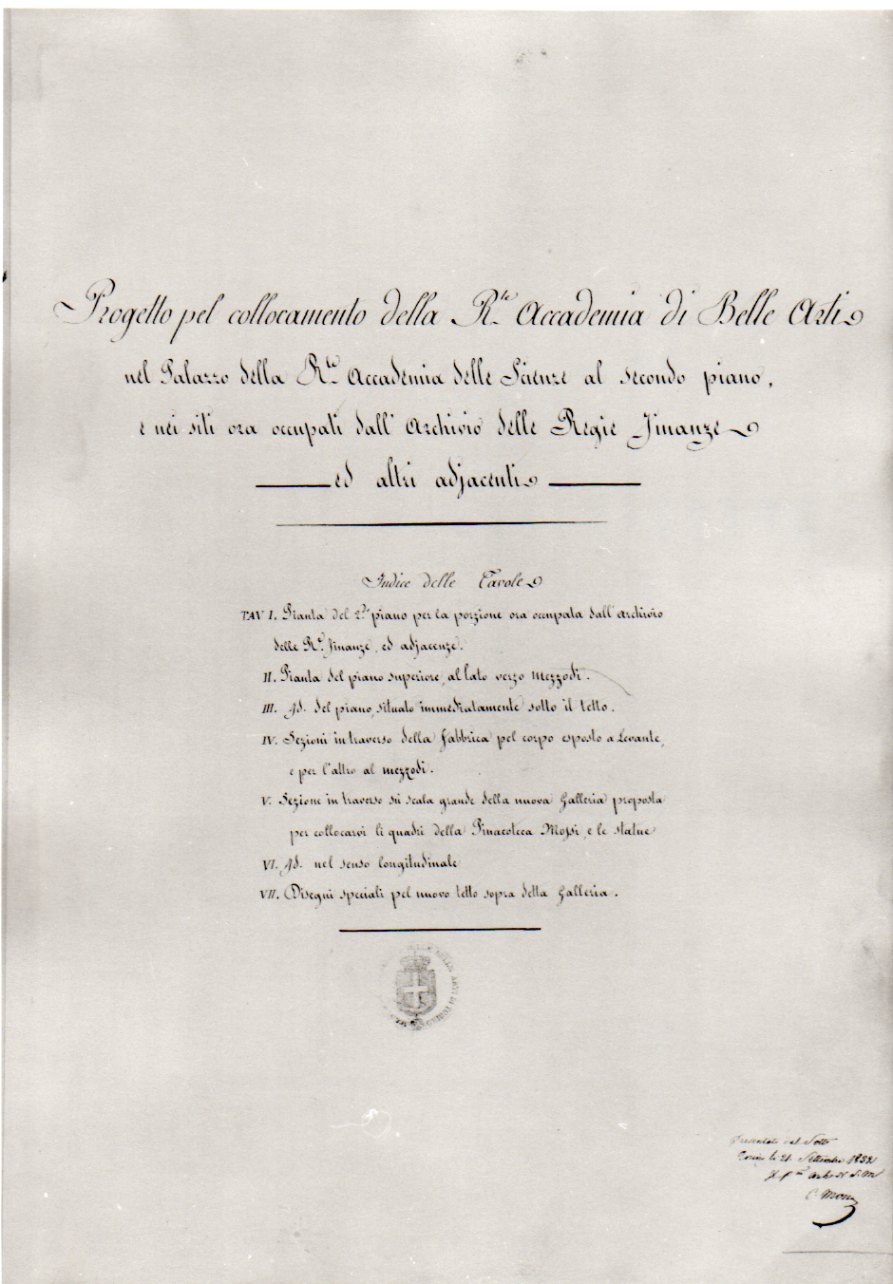 Progetto pel collocamento della R.le Accademia di Belle Arti
nel Palazzo della R.le Accademia delle Scienze al secondo piano,
e nei siti ora occupati dall'Archivio delle Regie Finanze
ed altri adjacenti
Indice delle Tavole
TAV I. Pianta del 2.do piano per la porzione ora occupata dall'archivio
delle R.e Finanze, ed adjacenze.
II. Pianta del piano superiore, al lato verso mezzodì.
III. Id. del piano, situato immediatamente sotto il tetto.
IV. Sezioni in traverso della fabbrica pel corpo esposto a Levante,
e per l'altro al mezzodì.
V. Sezione in traverso su scala grande della nuova Galleria proposta
per collocarvi li quadri della Pinacoteca Mossi, e le statue
VI. Id. nel senso longitudinale
VII. Disegni speciali pel nuovo tetto sopra detta Galleria.
Torino li 21 Settembre 1832